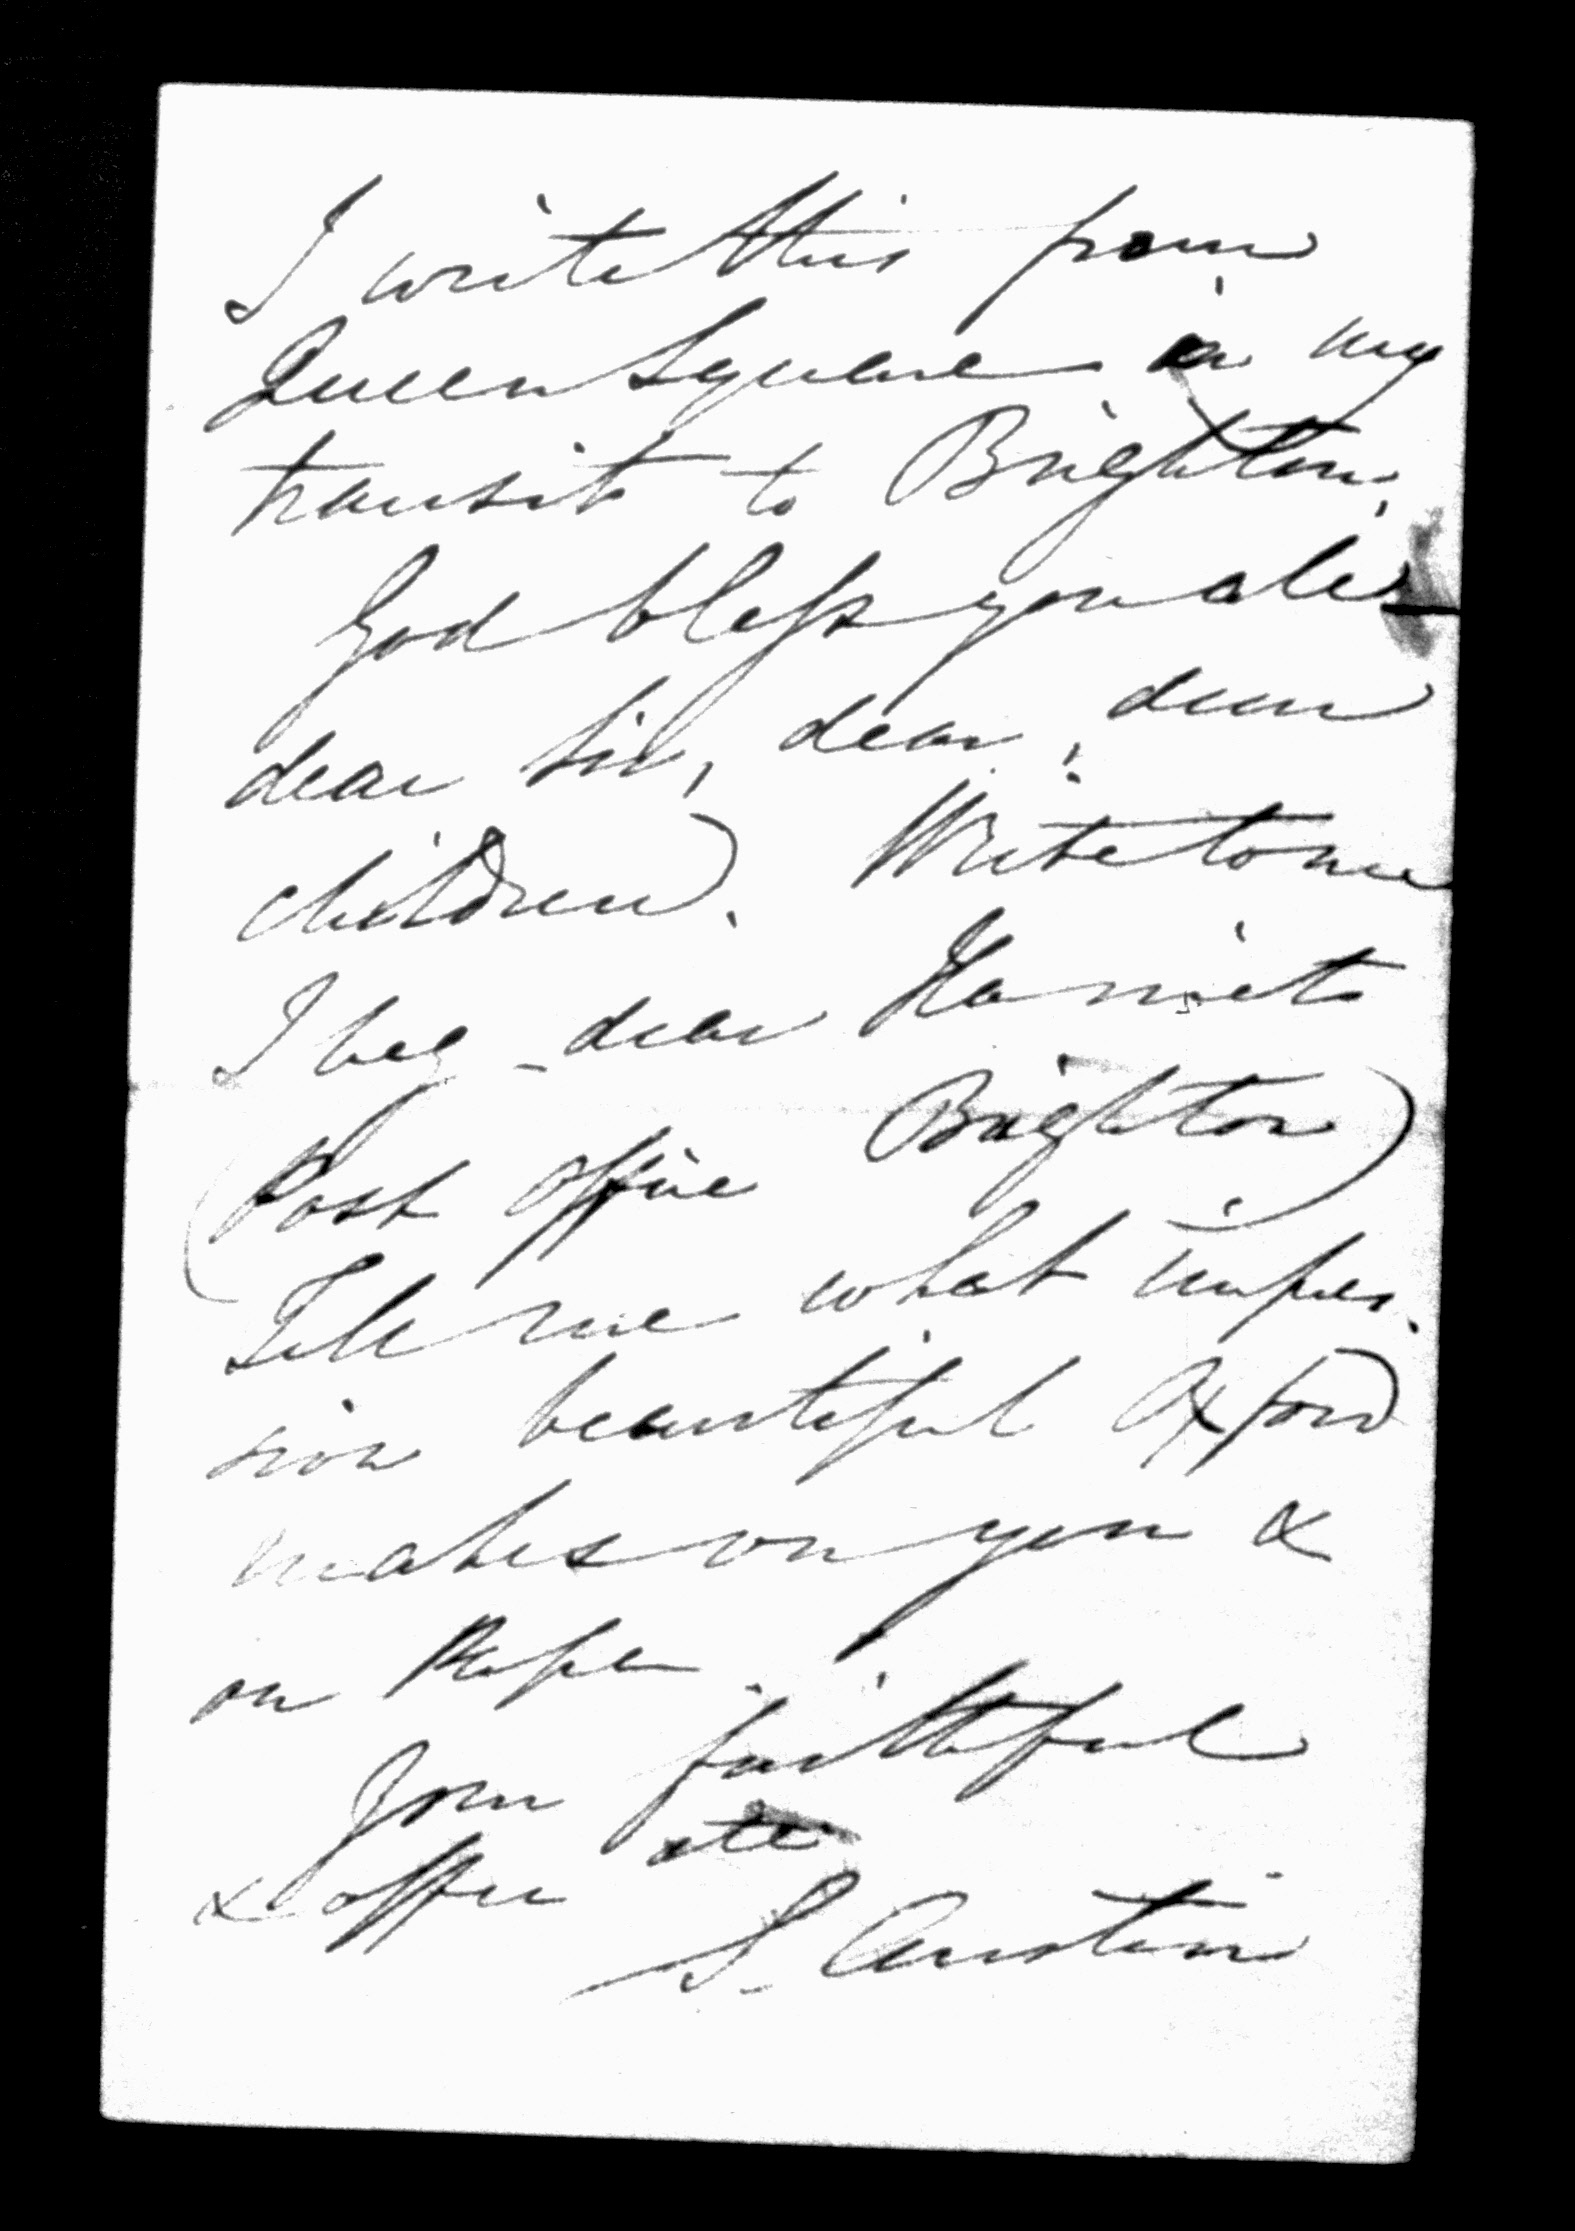 I write this from
Queen Square in my
transit to Brighton.
God bless you all
dear Sir, dear, dear
children. Write to me
I beg - dear Harriet
(Post office Brighton)
Tell me what impres
sion beautiful Oxford
makes on you &
on
Your faithful
& affec ate
S. Austin